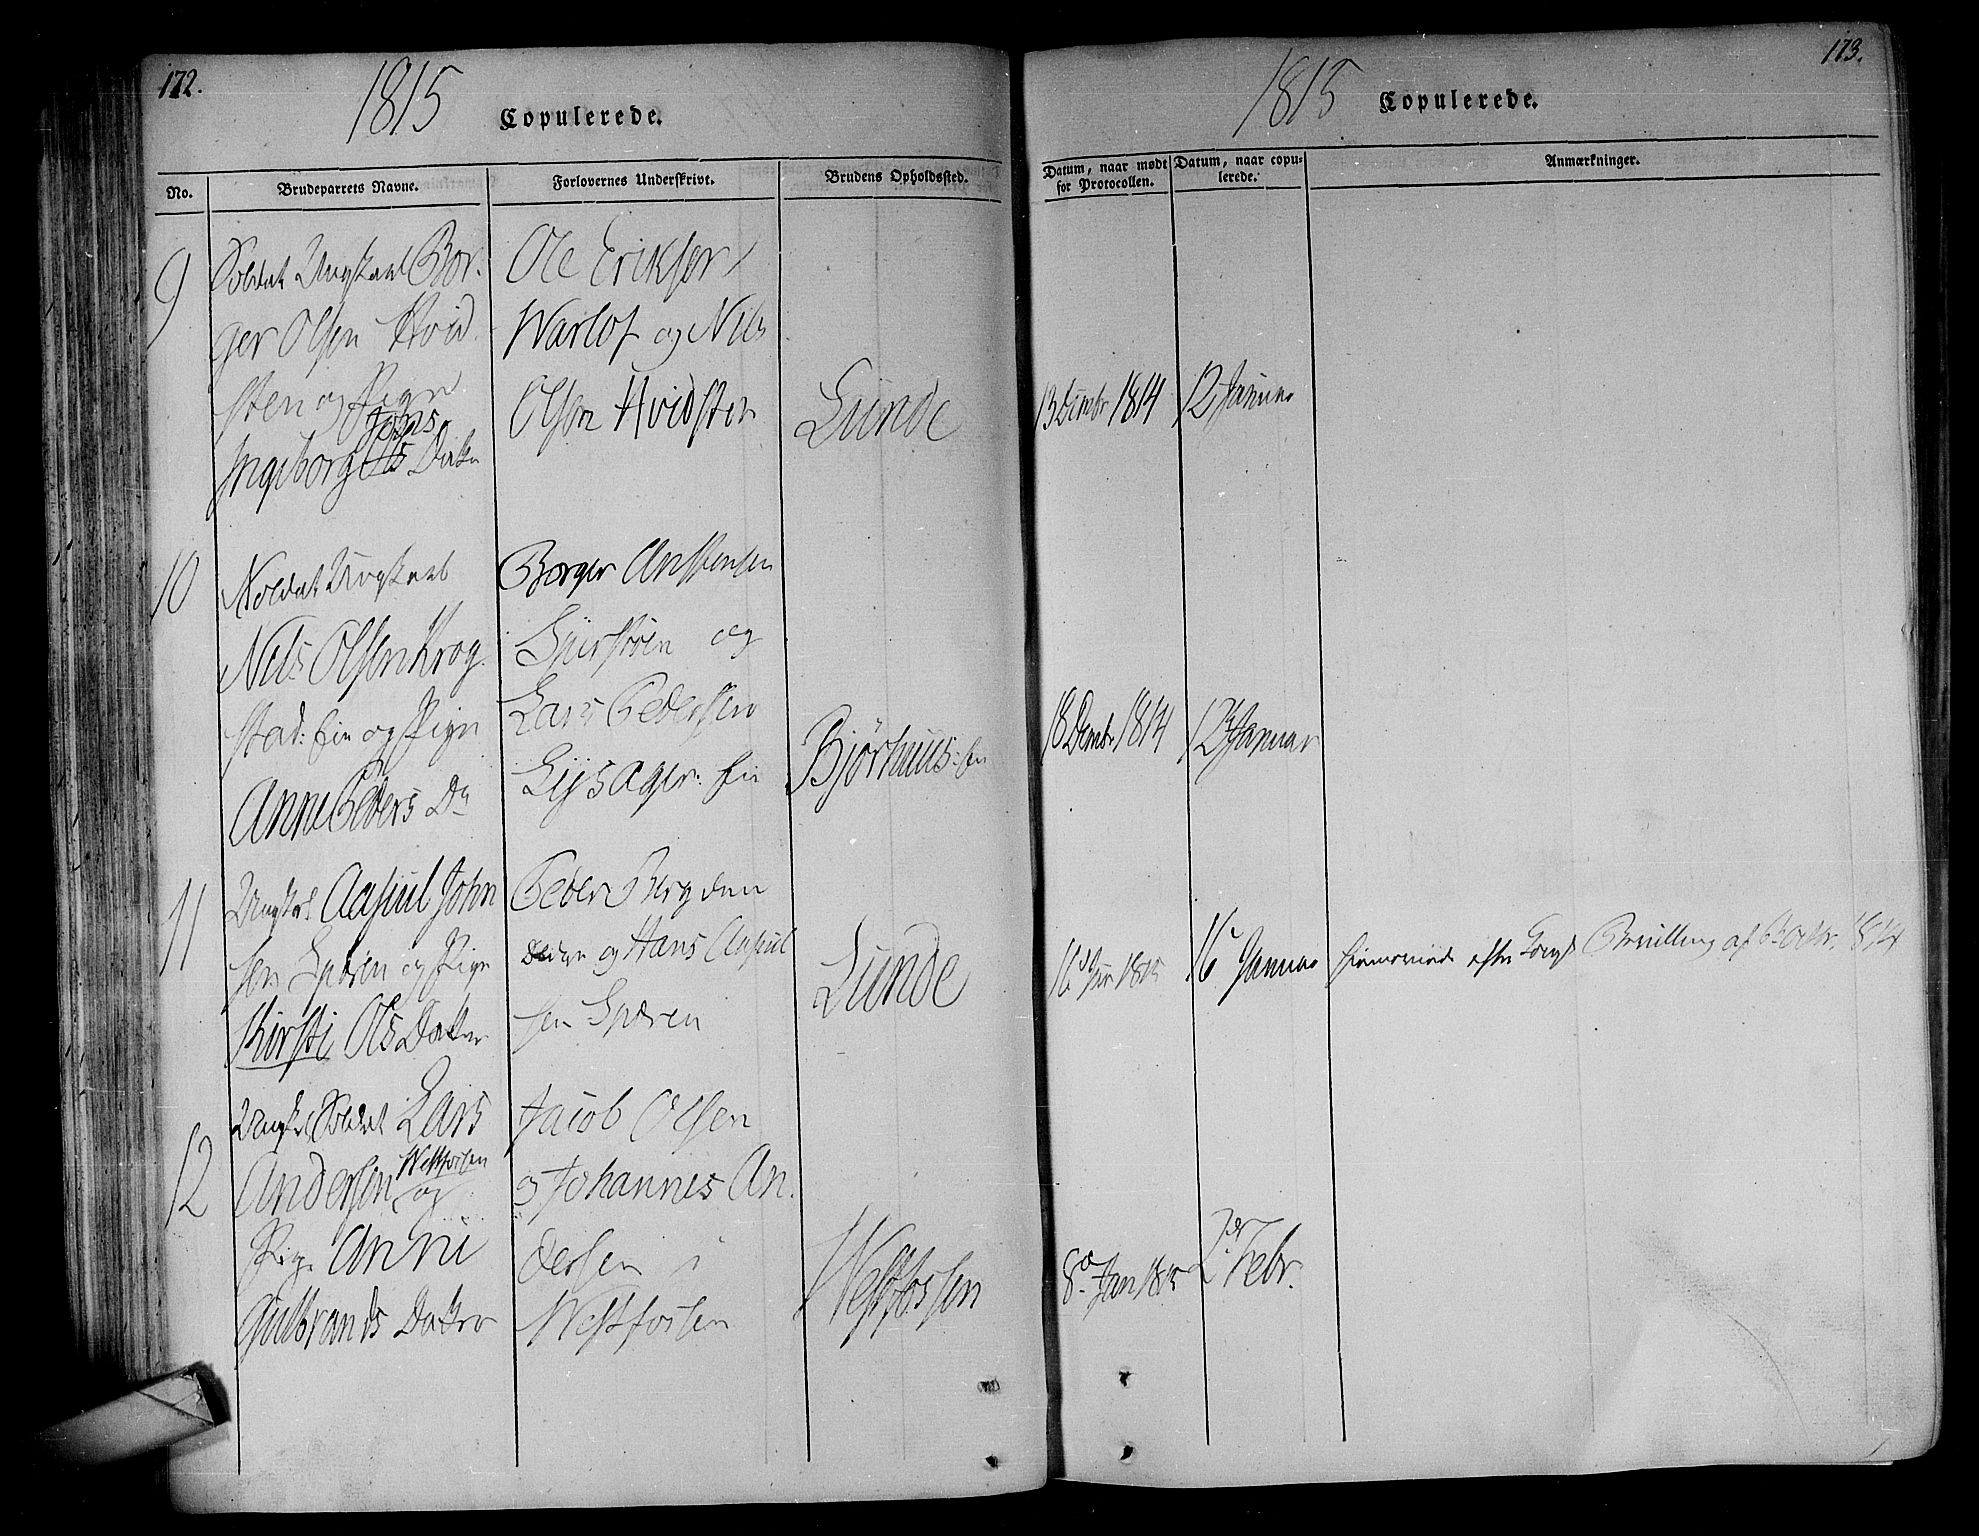 172.
1815
Copulerede.
No.
Brudeparrets Navne.
Forlovernes Underskrivt.
Brudens Opholdssted.
9
Soldat Ungkarl Bor-
ger Olsen Hvid
sten og Pige
Johns
Ingeborg Ols Datter
Ole Eriksen
Warlof og Nils
Olsen Hvidsten
Lunde
10
Soldat Ungkarl
Nils Olsen Krog
stad: Eie og Pige
Anne Peders Dr
Borger Anstensen
og
Lars Pedersen
Lysager: Eie
Bjørhuus: Eie
11
Ungkarl Aasuul John
sen Speren og Pige
Kirsti Ols Datter
Peder Bergden
og Hans Aasuul
sen Speren
Lunde
12
Ungk. Soldat Lars
Andersen Westfossen
og
Pige Anne
Gulbrands Datter
Jacob Olsen
og Johannes An-
dersen i
Westfossen
Westfossen
173.
1815
Copulerede.
Datum, naar mødt
for Protocollen.
Datum, naar copu-
lerede.
Anmærkninger.
13 Decembr 1814
12 Januar
18 Decembr 1814
12 Januar
16 Jan 1815
16 Januar
efter Kongl. Bevilling af 6 Octbr. 1814
8de Jan 1815
2den Febr.